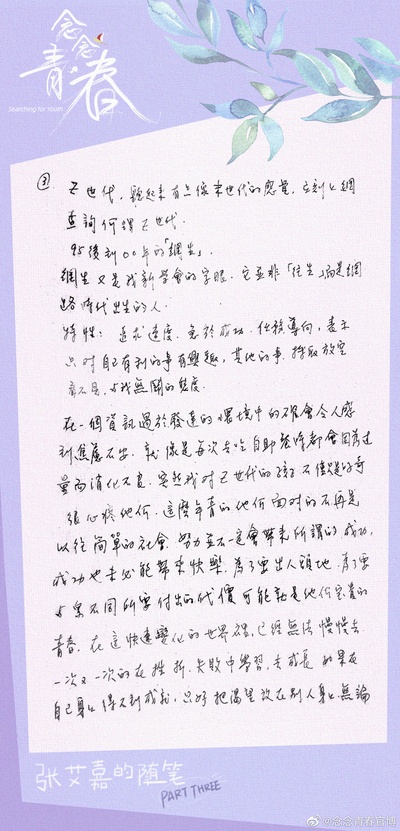 念念
青春
Searching for Youth
③ Z世代，聽起來有点像末世代的感覺，立刻上網
查詢何謂Z世代．
95後到00年的「網生」．
網生又是我新學會的字眼．它並非「往生」而是網
路時代出生的人．
特性：追求速度．急於成功．任務導向，表示
只对自己有利的事有興趣，其他的事．採取放空
意不見．与我無關的態度．
在一個資訊過於發達的環境中的確會令人感
到焦慮不安．就像是每次去吃自助餐時都會因為过
量而消化不良．突然我对Z世代的孩子不僅是好奇
很心疼他們．這麼年青的他們面对的不再是
以往簡單的社會．努力並不一定會帶來所謂的成功，
成功也未必能帶來快樂．為了要出人頭地．為了要
与眾不同所要付出的代價可能就是他們宝貴的
青春．在這快速變化的世界裡，已經無法慢慢去
一次又一次的在挫折．失敗中學習，去成長．如果在
自己身上得不到成就，只好把渴望放在別人身上．無論
张艾嘉的随笔
PART THREE
@念念青春官博